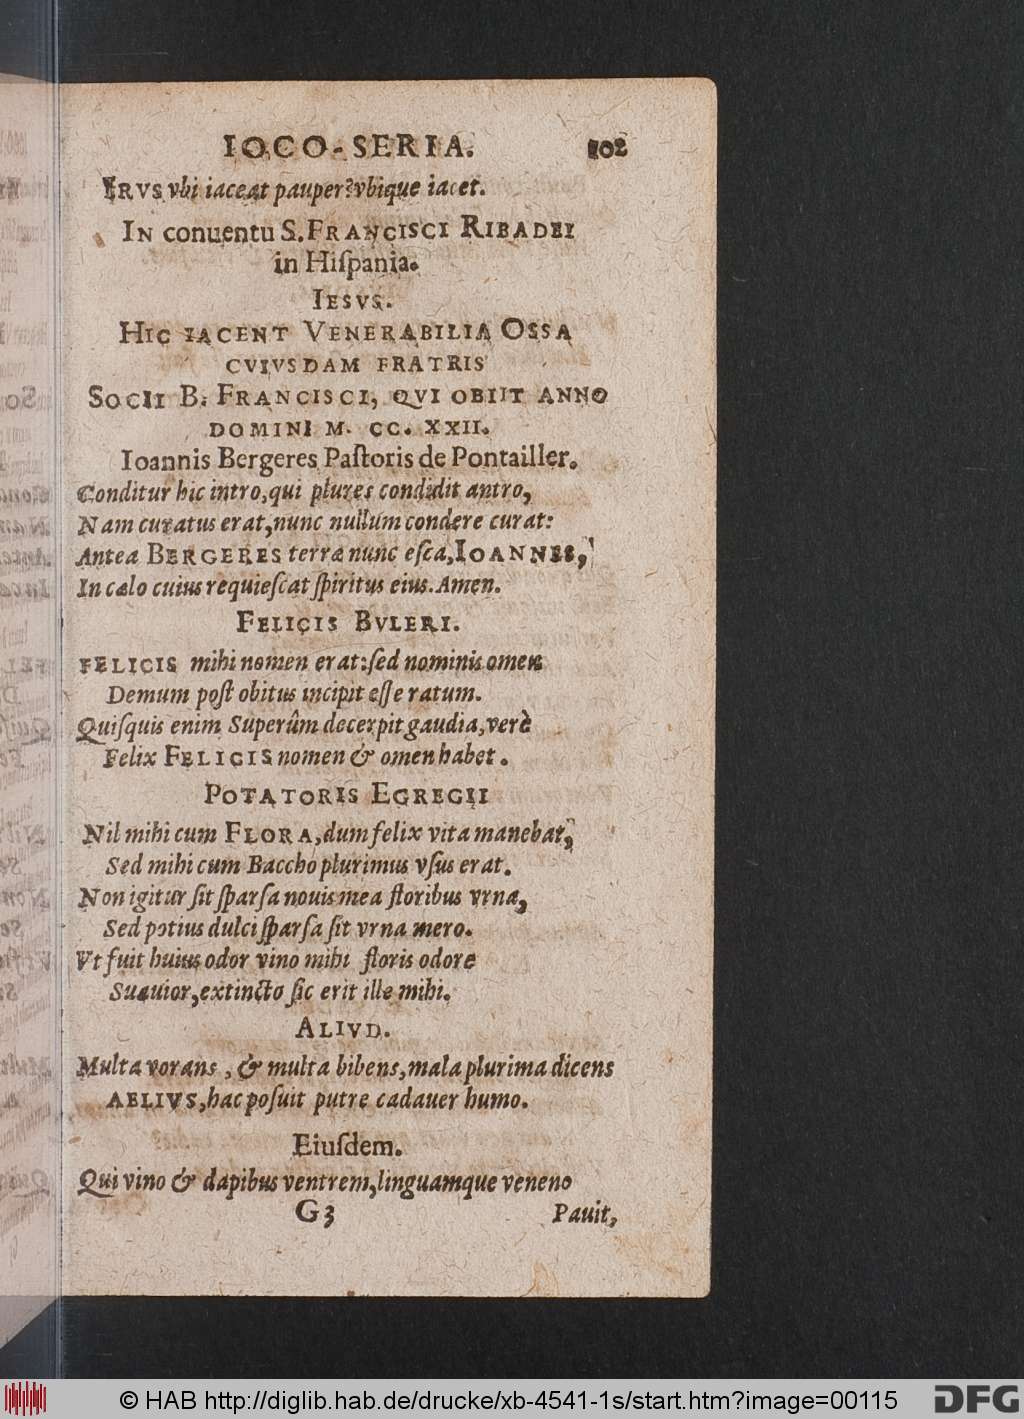 IOCO-SERIA. 102
IRVS vbi iaceat pauper? vbique iacet.
IN conuentu S. FRANCISCI RIBADEI
in Hiſpania.
IESVS.
HIC IACENT VENERABILIA OSSA
CVIVSDAM FRATRIS
SOCII B. FRANCISCI, QVI OBIIT ANNO
DOMINI M. CC. XXII.
Ioannis Bergeres Paſtoris de Pontailler.
Conditur hic intro, qui plures condidit antro,
Nam curatus erat, nunc nullum condere curat:
Antea BERGERES terra nunc eſca, IOANNES,
In cælo cuius requieſcat ſpiritus eius. Amen.
FELICIS BVLERI.
FELICIS mihi nomen erat: ſed nominis omen
Demum poſt obitus incipit eſſe ratum.
Quiſquis enim Superûm decerpit gaudia, verè
Felix FELICIS nomen & omen habet.
POTATORIS EGREGII
Nil mihi cum FLORA, dum felix vita manebat,
Sed mihi cum Baccho plurimus vſus erat.
Non igitur ſit ſparſa nouis mea floribus vrna,
Sed potius dulci ſparſa ſit vrna mero.
Vt fuit huius odor vino mihi floris odore
Suauior, extincto ſic erit ille mihi.
ALIVD.
Multa vorans, & multa bibens, mala plurima dicens
AELIVS, hac poſuit putre cadauer humo.
Eiuſdem.
Qui vino & dapibus ventrem, linguamque veneno
G3 Pauit,
© HAB http://diglib.hab.de/drucke/xb-4541-1s/start.htm?image=00115
DFG